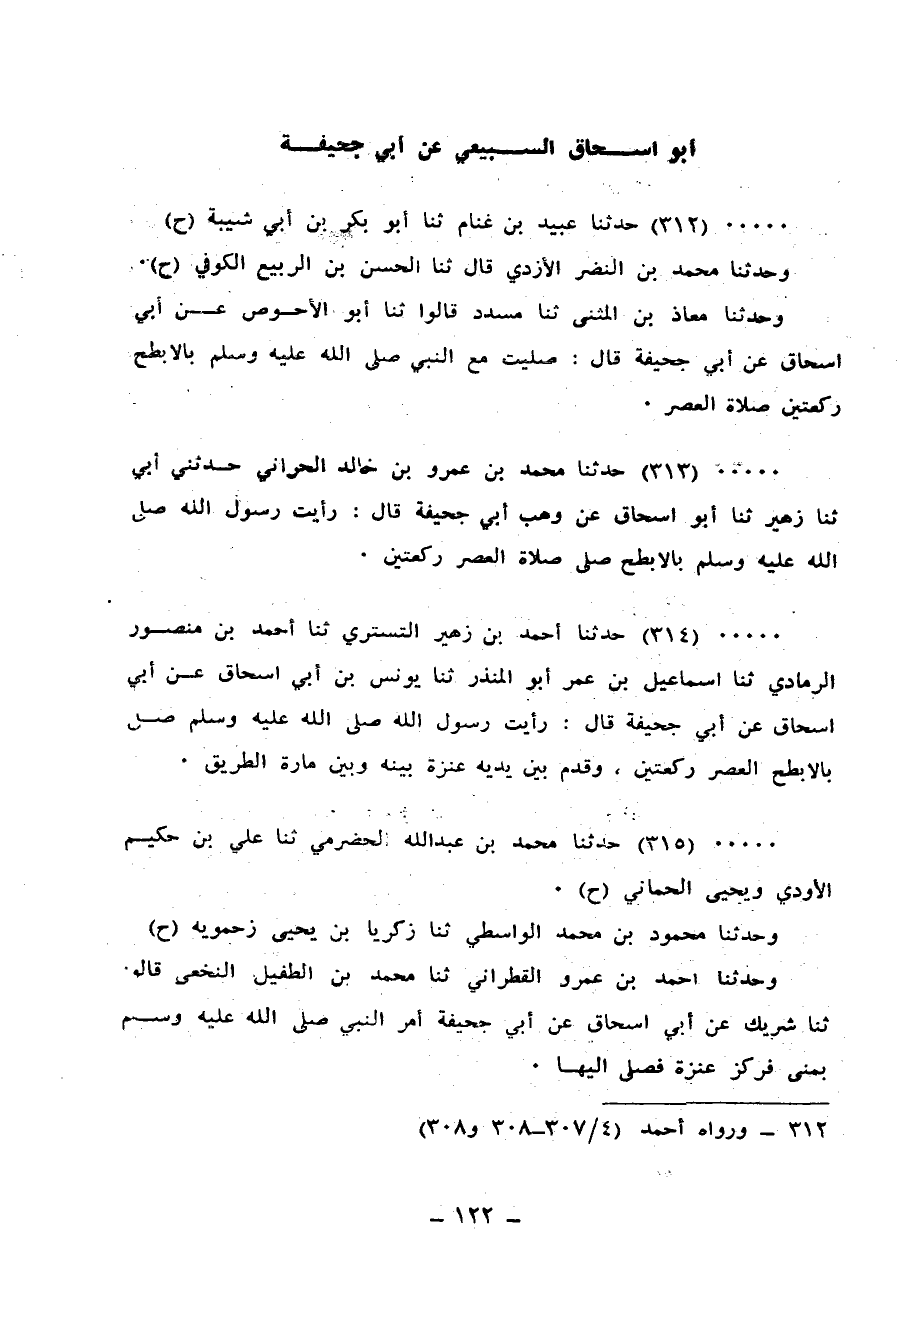 أبو اسحاق السبيعي عن أبي جحيفة
٠٠٠٠٠ (٣١٢) حدثنا عبيد بن غنام ثنا أبو بكر بن أبي شيبة (ح)
وحدثنا محمد بن النضر الأزدي قال ثنا الحسن بن الربيع الكوفي (ح)٠
وحدثنا معاذ بن المثنى ثنا مسدد قالوا ثنا أبو الأحوص عن أبي
اسحاق عن أبي جحيفة قال : صليت مع النبي صلى الله عليه وسلم بالابطح
ركعتين صلاة العصر ٠
٠٠٠٠٠ (٣١٣) حدثنا محمد بن عمرو بن خالد الحراني حدثني أبي
ثنا زهير ثنا أبو اسحاق عن وهب أبي جحيفة قال : رأيت رسول الله صلى
الله عليه وسلم بالابطح صلى صلاة العصر ركعتين ٠
٠٠٠٠٠ (٣١٤) حدثنا أحمد بن زهير التستري ثنا أحمد بن منصور
الرمادي ثنا اسماعيل بن عمر أبو المنذر ثنا يونس بن أبي اسحاق عن أبي
اسحاق عن أبي جحيفة قال : رأيت رسول الله صلى الله عليه وسلم صلى
بالابطح العصر ركعتين ، وقدم بين يديه عنزة بينه وبين مارة الطريق ٠
٠٠٠٠٠ (٣١٥) حدثنا محمد بن عبدالله الحضرمي ثنا علي بن حكيم
الأودي ويحيى الحماني (ح) ٠
وحدثنا محمود بن محمد الواسطي ثنا زكريا بن يحيى زحمويه (ح)
وحدثنا احمد بن عمرو القطراني ثنا محمد بن الطفيل النخعي قالوا
ثنا شريك عن أبي اسحاق عن أبي جحيفة أمر النبي صلى الله عليه وسلم
بمنى فركز عنزة فصلى اليها ٠
٣١٢ – ورواه أحمد (٤/٣٠٧–٣٠٨ و٣٠٨)
– ١٢٢ –